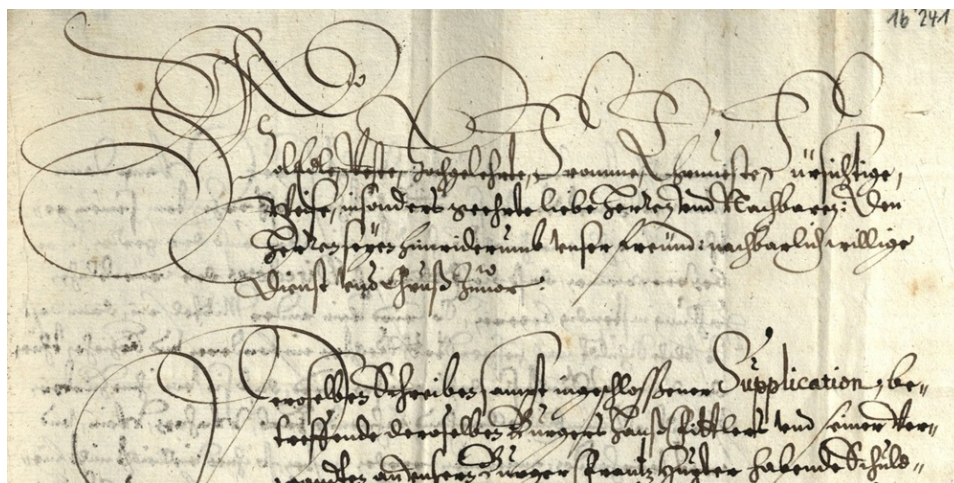 16 241
Woledle, Veste, Hochgelehrte, Fromme, Ehrnveste, Fürsichtige,
Weise, insonders geehrte liebe Herren und Nachbaren: Den
Herren seyen hinwiderumb unser freünd: nachbarlich willige
Dienst und Gruß Zuvor
Deroselben Schreiben sampt ingeschlossener Supplication, be-
treffende deroselben Burgers Hanß und seiner Ver-
wandten an unsern Burger Frantz habende Schuld-